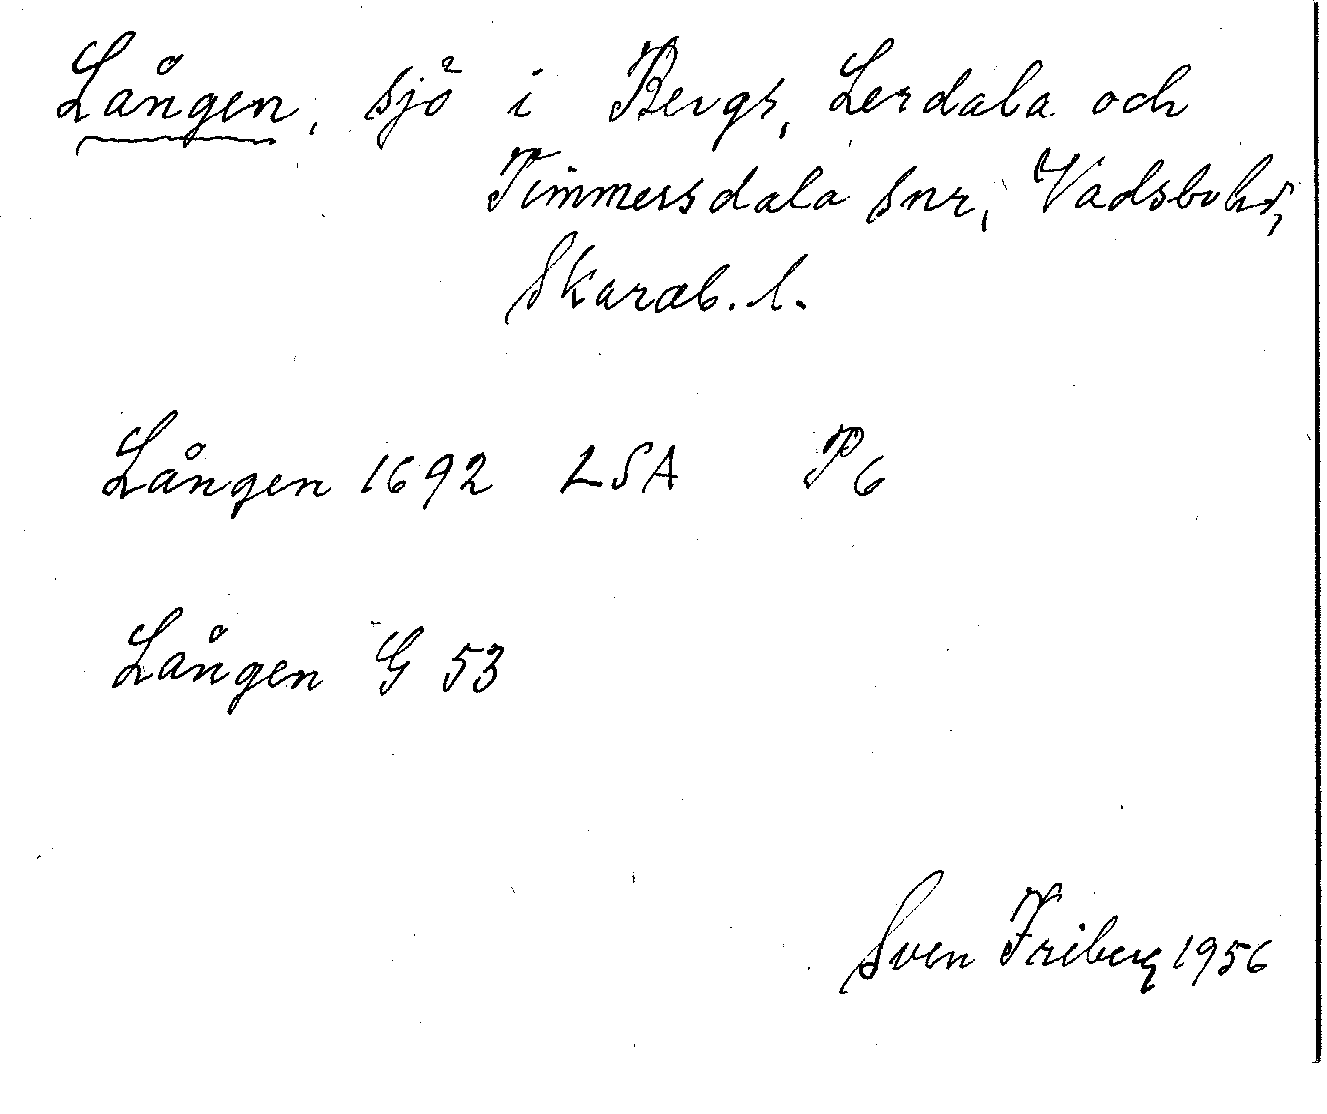 Lången, sjö i Bergs, Lerdala och
Timmersdala snr, Vadsbohd,
Skarab. l.
Lången 1692 LSA P6
Lången G 53
Sven Friberg 1956